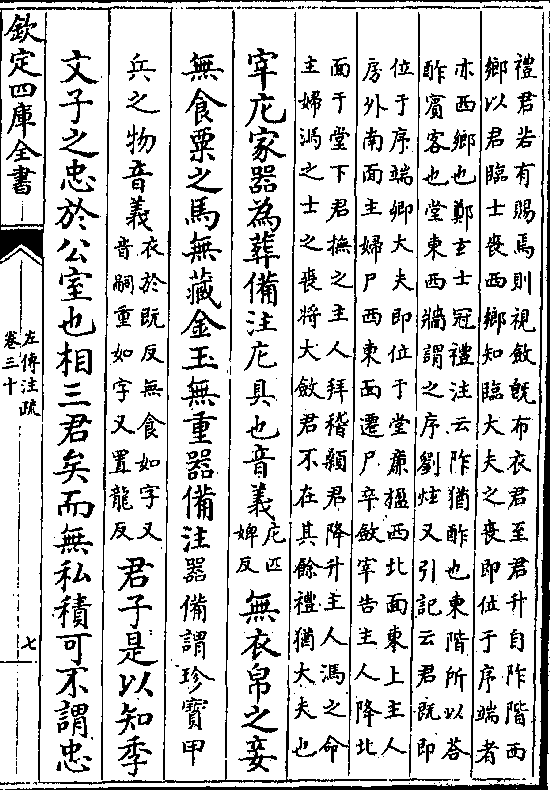 禮君若有賜焉則視斂旣布衣君至君升自阼階西
鄉以君臨士喪西鄉知臨大夫之喪即位于序端者
亦西鄉也鄭玄士冠禮注云阼猶酢也東階所以荅
酢賓客也堂東西牆謂之序劉炫又引記云君既即
位于序端卿大夫即位于堂亷楹西北面東上主人
房外南面主婦尸西東面遷尸卒斂宰告主人降北
面于堂下君撫之主人拜稽顙君降升主人馮之命
主婦馮之士之喪將大斂君不在其餘禮猶大夫也
宰庀家器為葬備注庀具也音義庀匹婢反無衣帛之妾
無食粟之馬無藏金玉無重器備注器備謂珍寶甲
兵之物音義衣於既反無食如字又音嗣重如字又置龍反君子是以知季
文子之忠於公室也相三君矣而無私積可不謂忠
欽定四庫全書
左傳注疏
卷三十
七